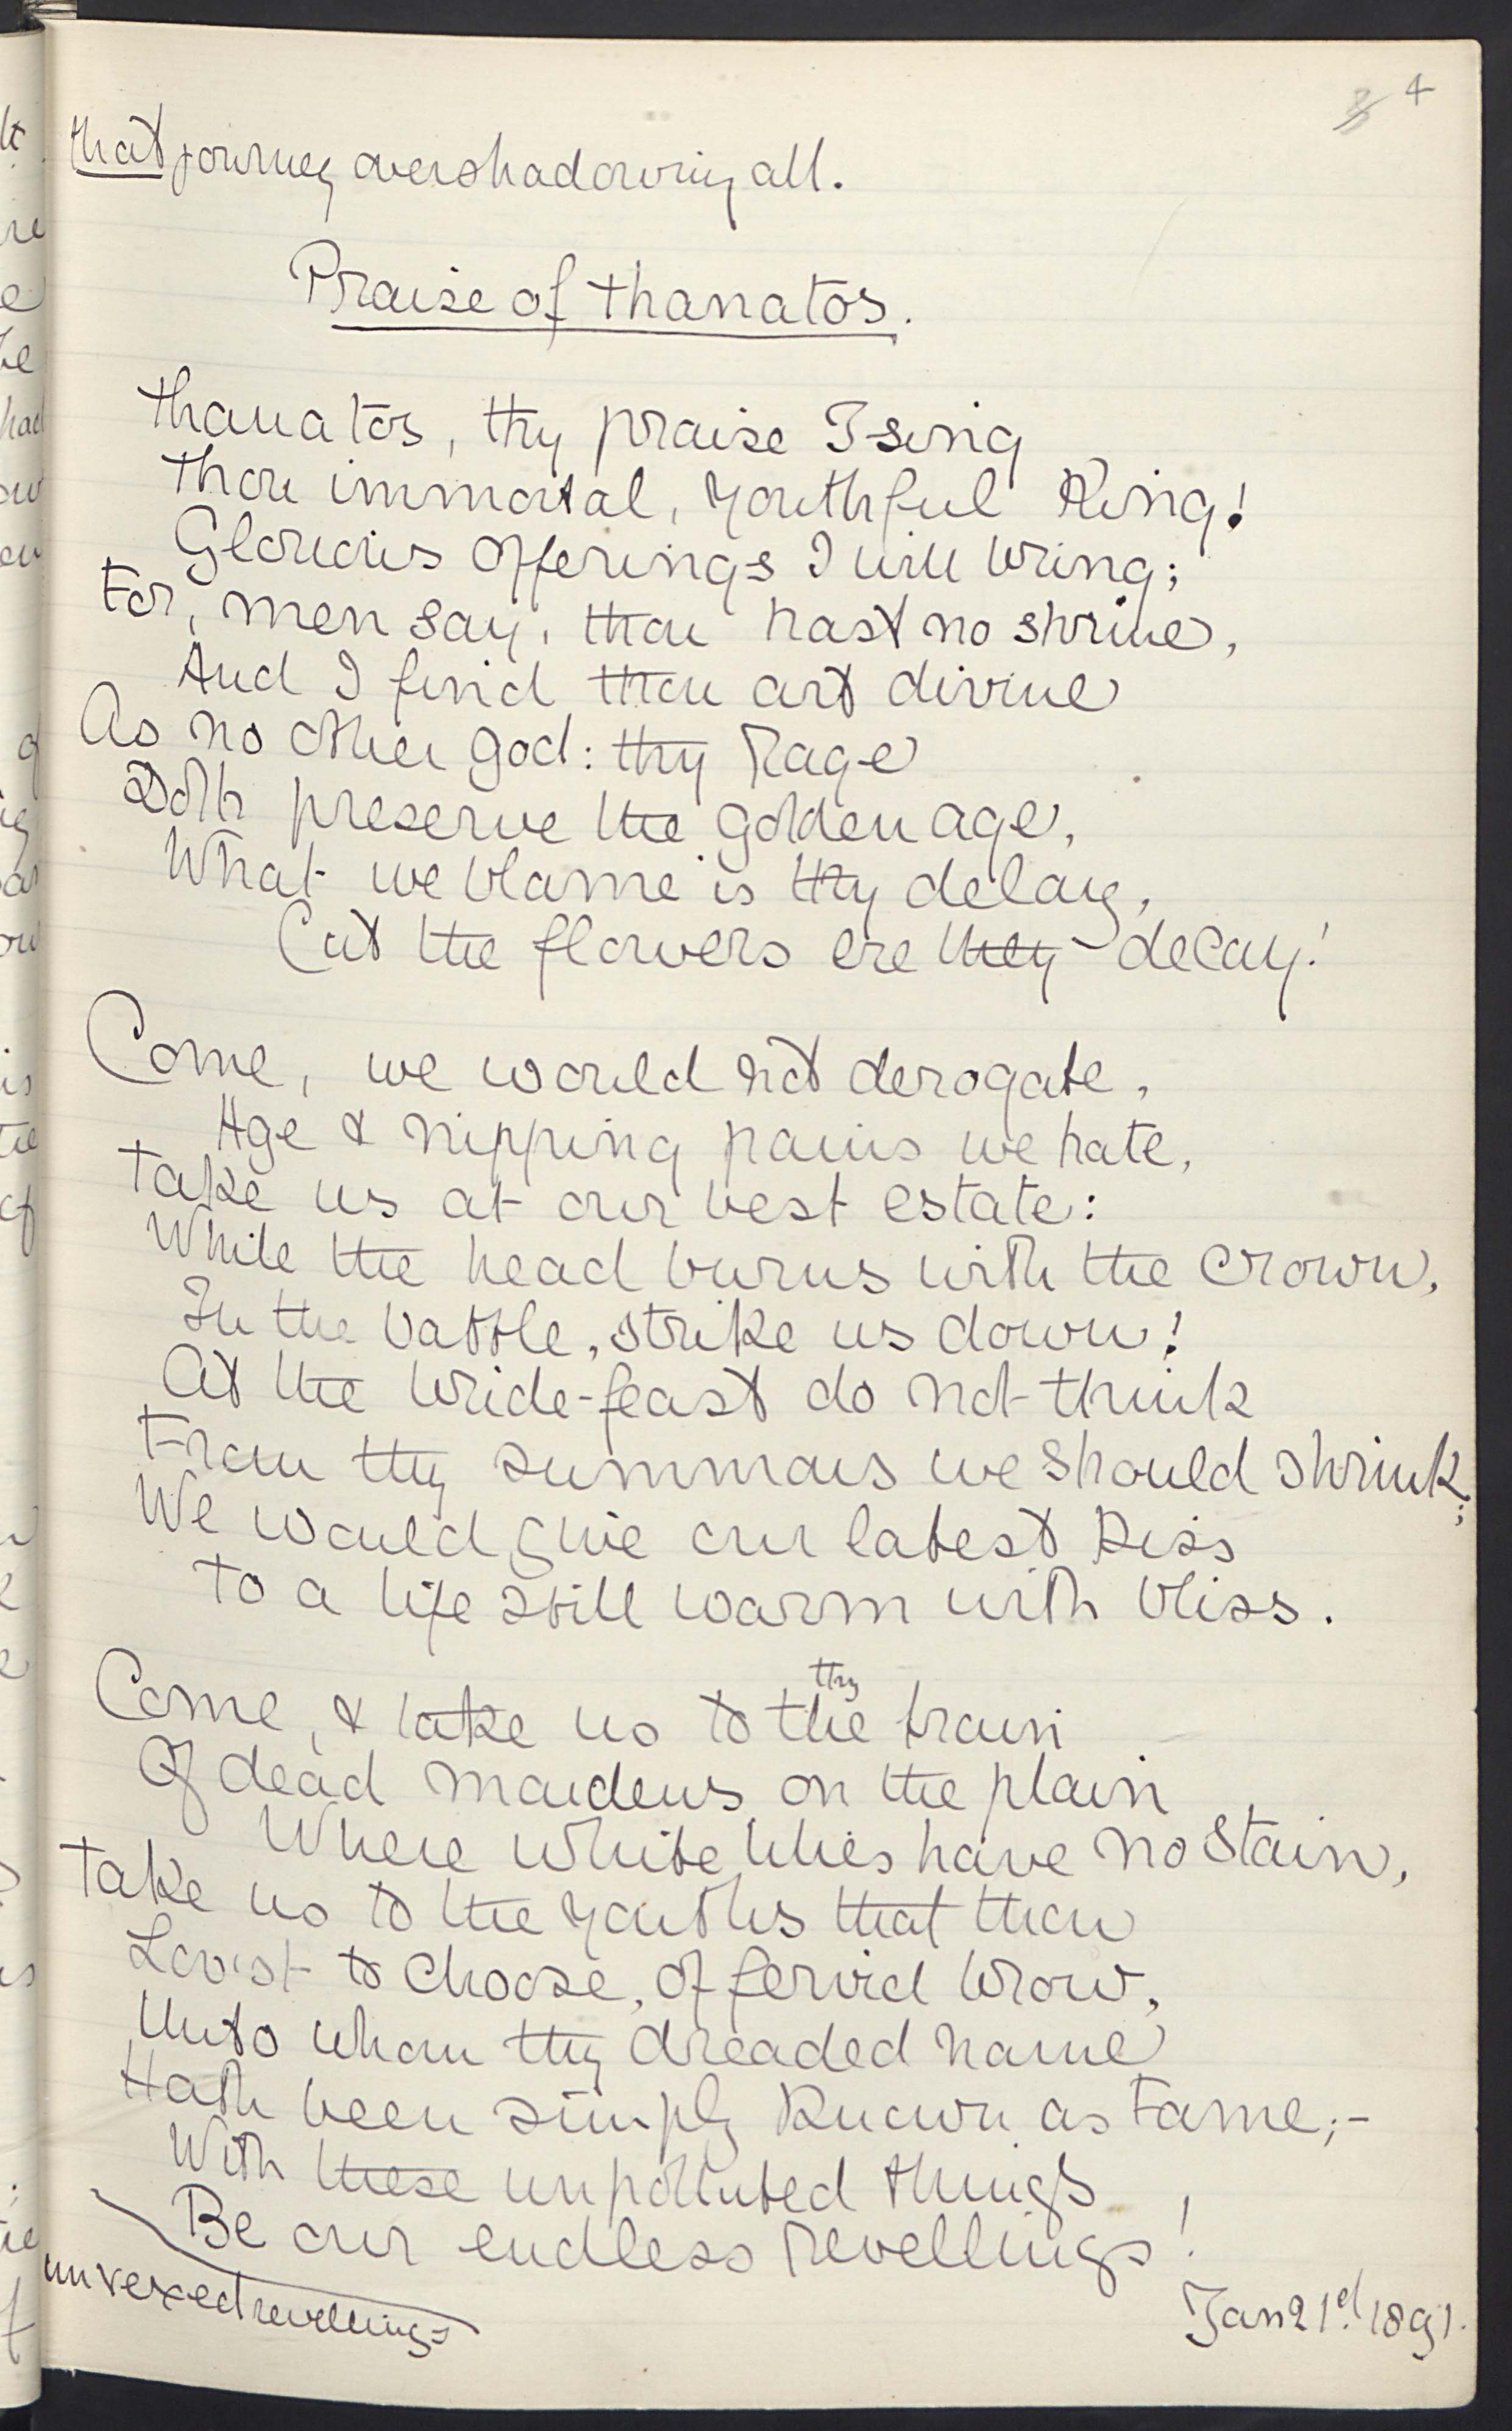 4
that journey overshadowing all.
Praise of Thanatos.
Thanatos, thy praise I sing
Thou immortal, youthful King!
Glorious offerings I will bring;
For, men say, thou hast no shrine,
And I find thou art divine
As no other god: thy rage
Doth preserve the golden age,
What we blame is thy delay,
Cut the flowers ere they decay!
Come, we would not derogate,
Age & nipping pains we hate,
Take us at our best estate:
While the head burns with the crown,
In the battle, strike us down!
At the bride-feast do not think
From thy summons we should shrink;
We would give our latest kiss
To a life still warm with bliss.
thy
Come, & take us to the train
Of dead maidens on the plain
Where white lilies have no stain,
Take us to the youths that thou
Lov'st to choose, of fervid brow,
Unto whom thy dreaded name
Hath been simply known as Fame;-
With these unpolluted things
Be our endless revellings!
unvexed revellings
Jan 21st 1891.